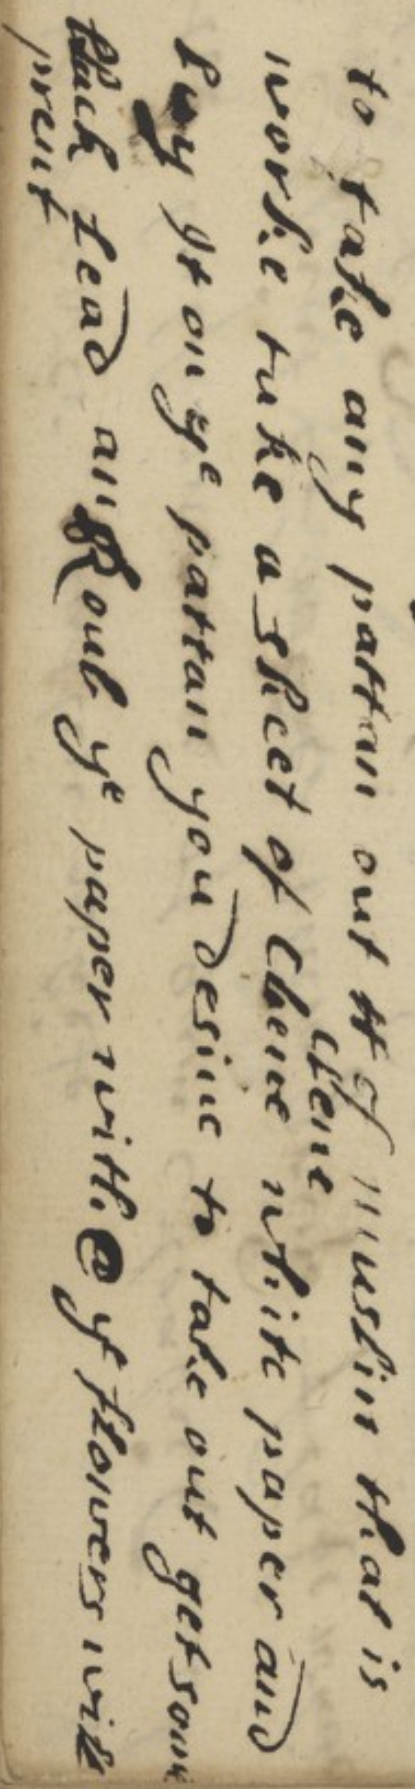 to take any pattan out of muslin that is
worke take a sheet of Clene white paper and
lay It on ye pattan you desine to take out get som
black Lead an Roub ye paper with ye flowers will
prent